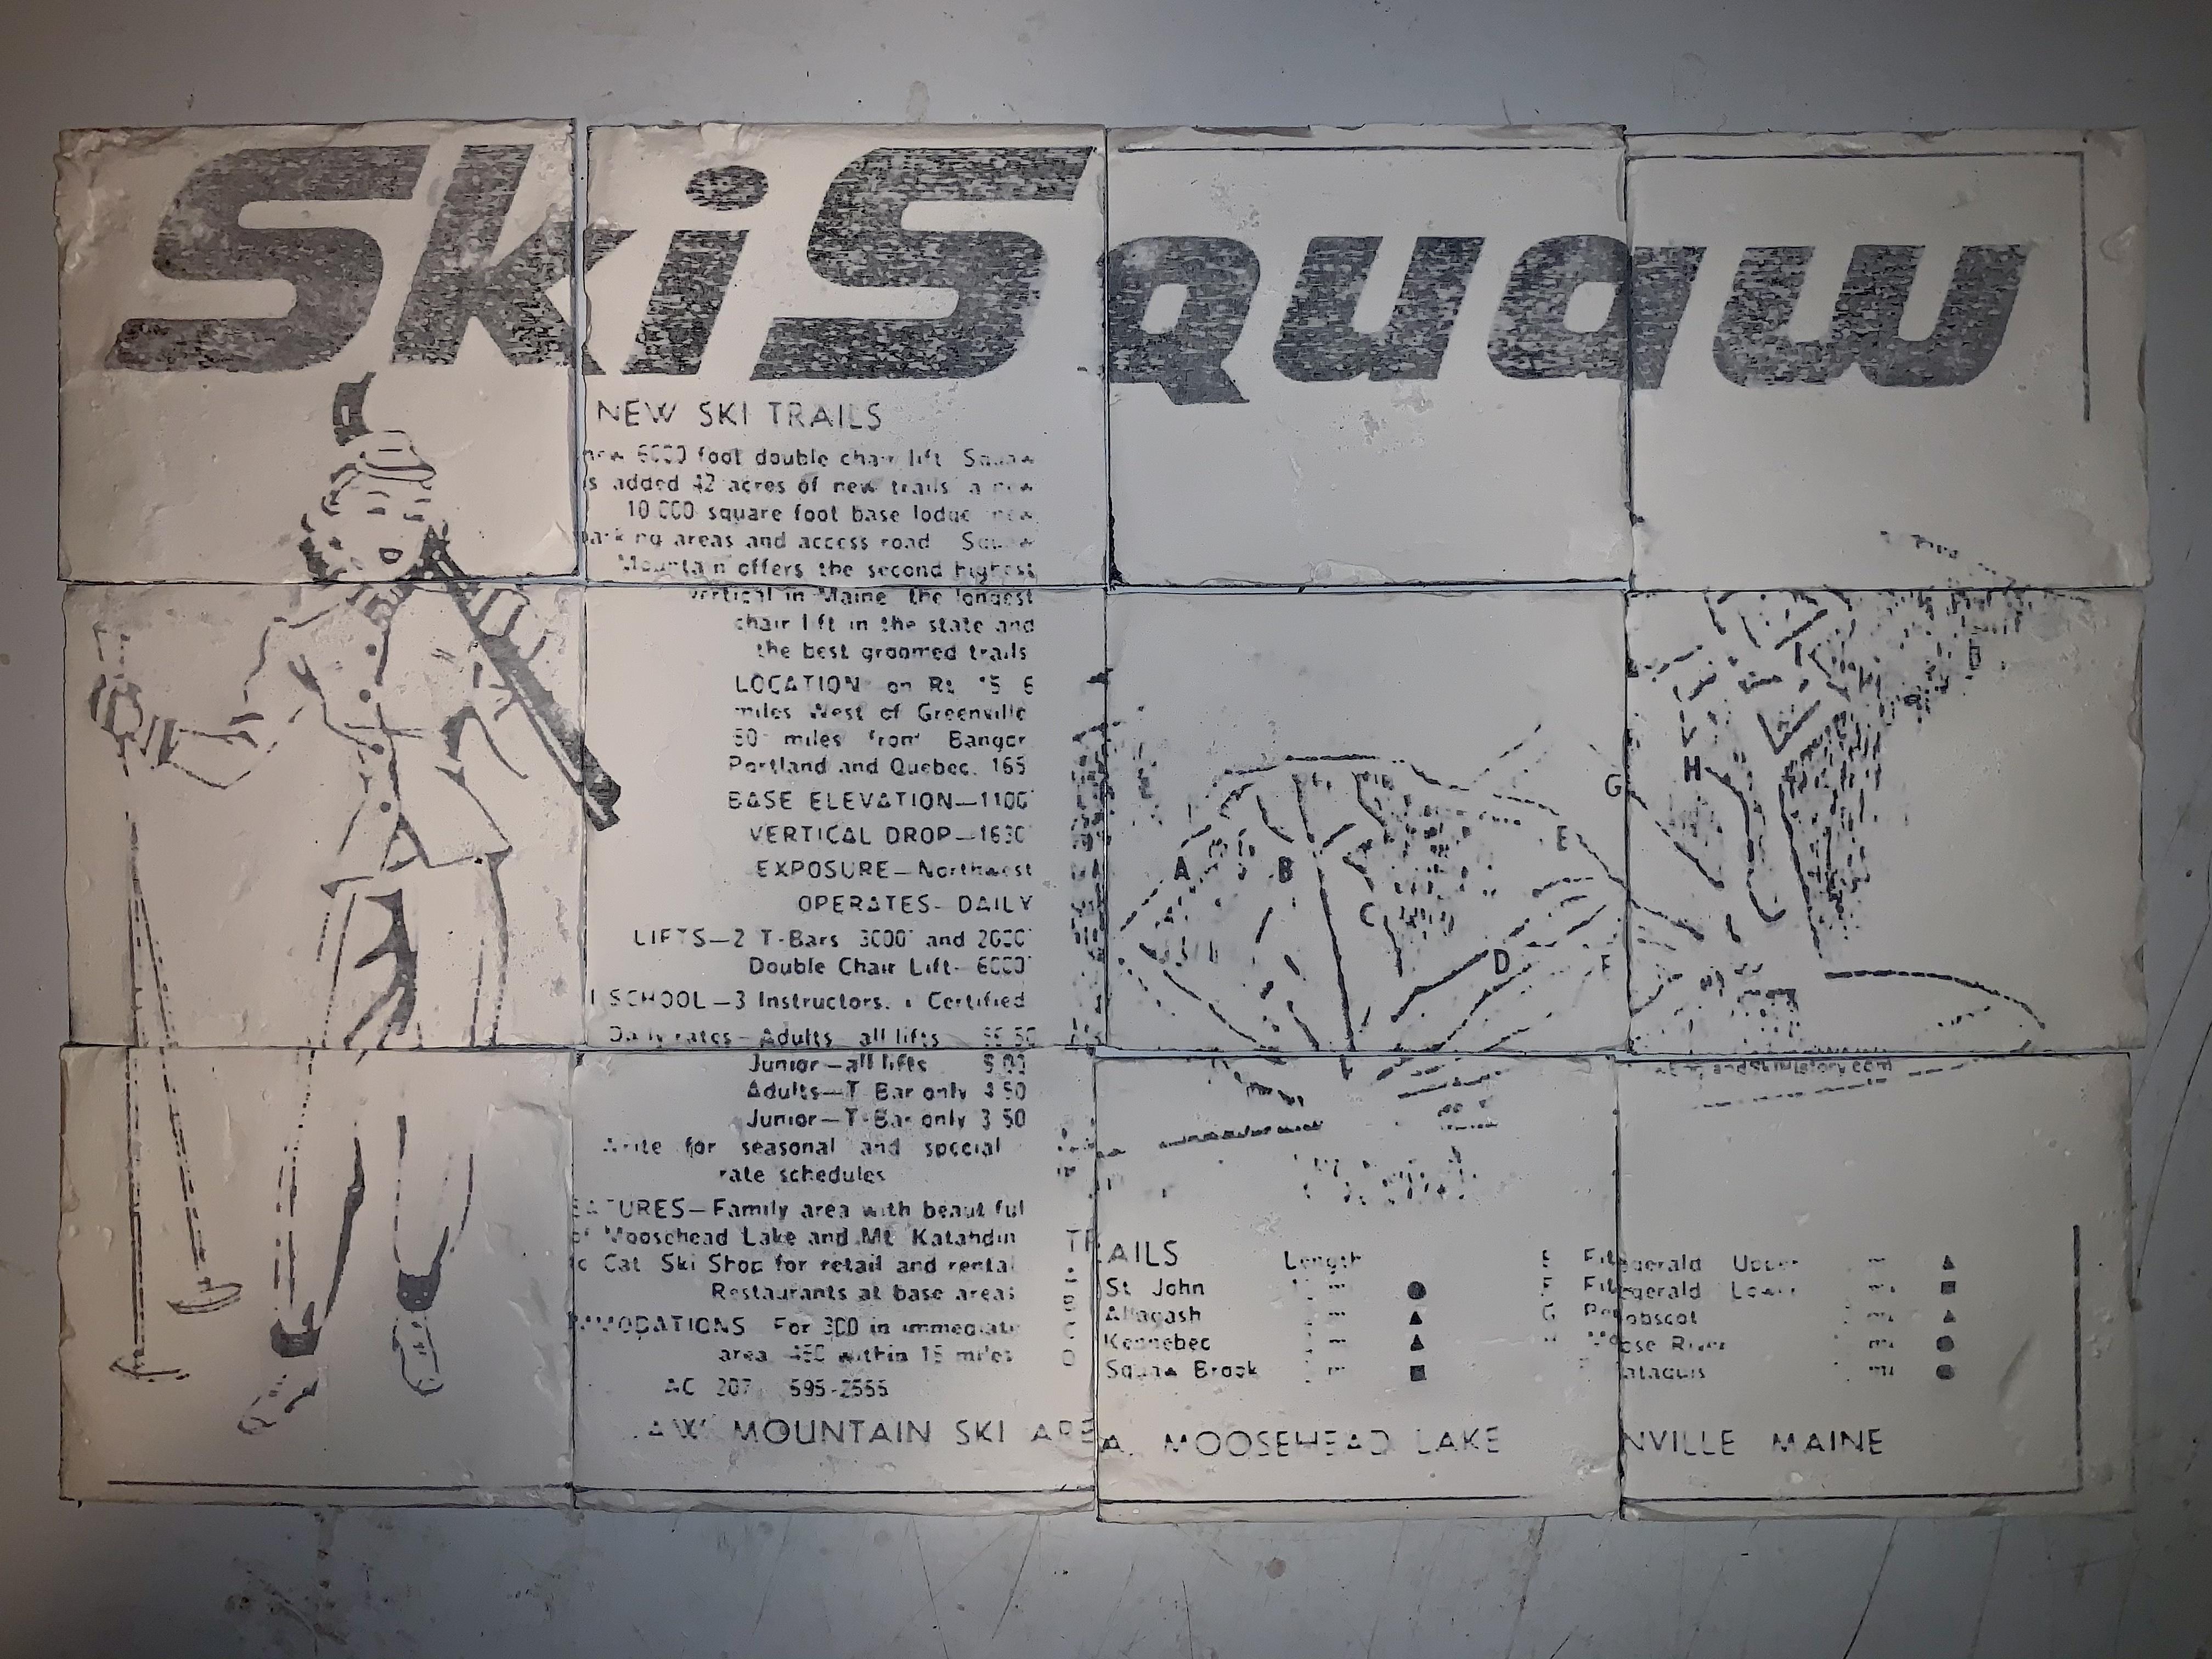 Ski Squaw
NEW SKI TRAILS
new 6000 foot double chair lift Squaw
s added 42 acres of new trails a new
10 000 square foot base lodge new
parking areas and access road Squaw
Mountain offers the second highest
vertical in Maine the longest
chair lift in the state and
the best groomed trails
LOCATION on Rt 15 6
miles West of Greenville
miles from Bangor
Portland and Quebec. 165
BASE ELEVATION—1100'
VERTICAL DROP—1630'
EXPOSURE—Northwest
OPERATES- DAILY
LIFTS—2 T-Bars 3000' and 2600'
Double Chair Lift- 6000'
I SCHOOL—3 Instructors. 1 Certified
Daily rates—Adults all lifts
Junior—all lifts 5 00
Adults—T Bar only 4 50
Junior—T-Bar only 3 50
Write for seasonal and special
rate schedules
EATURES—Family area with beautiful
of Moosehead Lake and Mt Katahdin
Cat Ski Shop for retail and rental
Restaurants at base areas
MMODATIONS For 300 in immediate
area 450 within 15 miles
AC 207 695-2555
A
B
C
D
E
F
G
H
TRAILS Length
St John
Allagash
Kennebec
Squaw Brook
E Fitzgerald Upper
F Fitzgerald Lower
G Penobscot
Moose River
ataquis
AW MOUNTAIN SKI AREA, MOOSEHEAD LAKE NVILLE MAINE